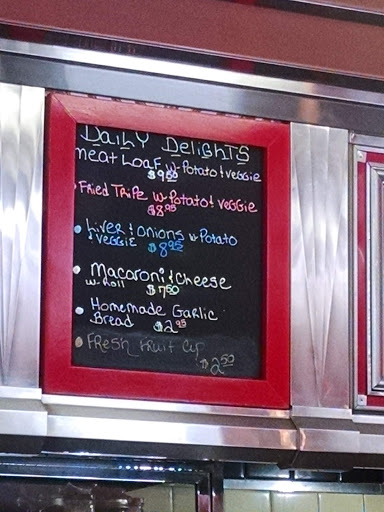 Daily Delights
meat Loaf w Potato & veggie
$9.50
Fried Tripe w Potato & veggie
$8.95
Liver & Onions w Potato
& veggie $8.95
Macaroni & Cheese
w roll $7.50
Homemade Garlic
Bread $2.95
Fresh Fruit Cup
$2.50